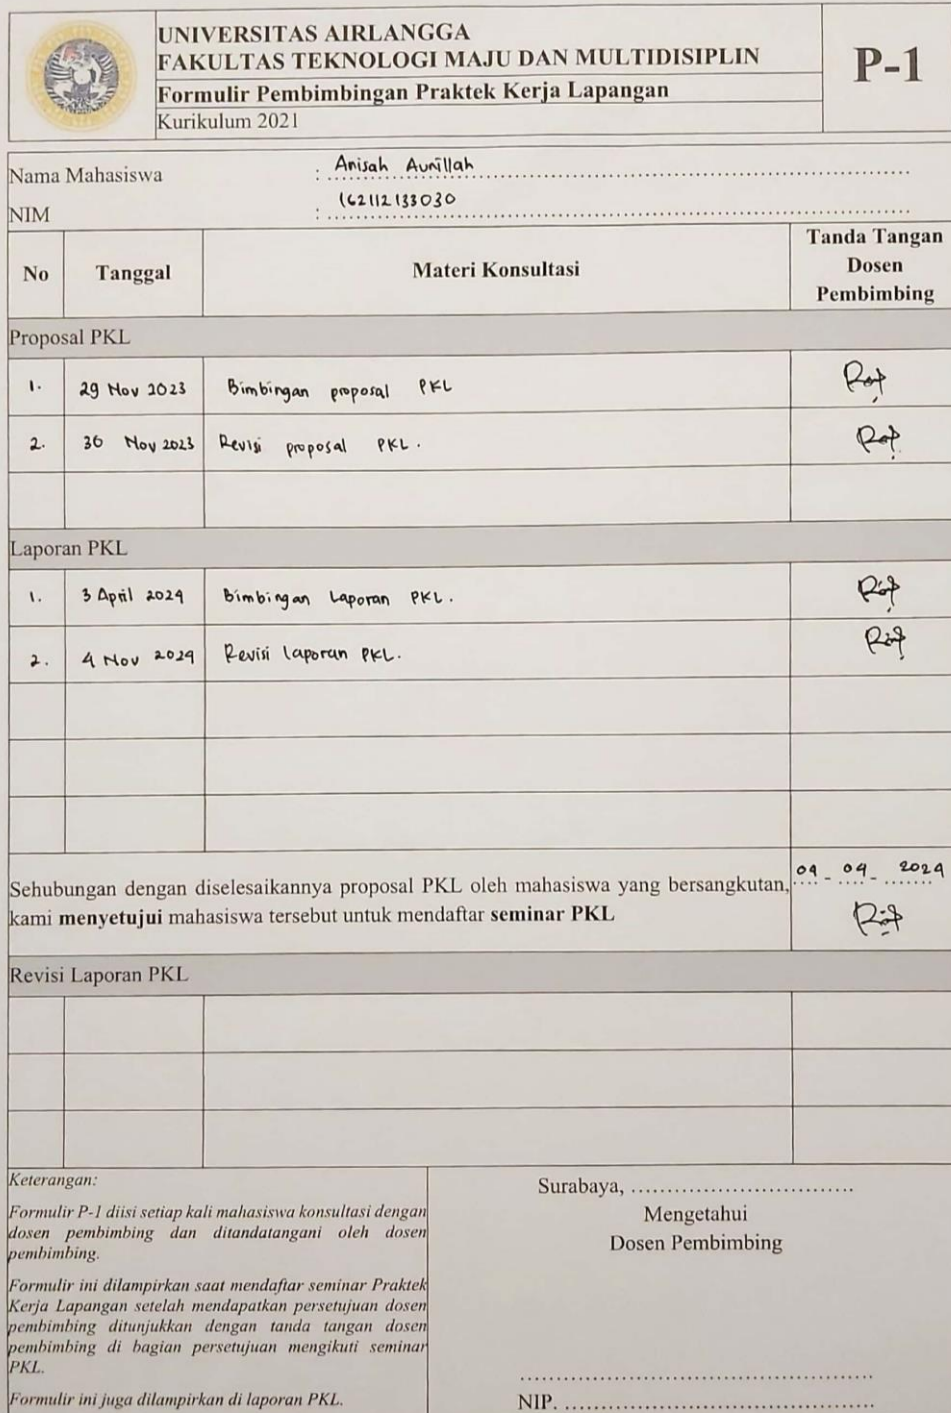 UNIVERSITAS AIRLANGGA
FAKULTAS TEKNOLOGI MAJU DAN MULTIDISIPLIN
Formulir Pembimbingan Praktek Kerja Lapangan
Kurikulum 2021
P-1
Nama Mahasiswa : Anisah Aunillah
NIM : 162112133030
No Tanggal Materi Konsultasi Tanda Tangan Dosen Pembimbing
Proposal PKL
1. 29 Nov 2023 Bimbingan proposal PKL
2. 30 Nov 2023 Revisi proposal PKL.
Laporan PKL
1. 3 April 2024 Bimbingan Laporan PKL.
2. 4 Nov 2024 Revisi laporan PKL.
Sehubungan dengan diselesaikannya proposal PKL oleh mahasiswa yang bersangkutan,
kami menyetujui mahasiswa tersebut untuk mendaftar seminar PKL
04 - 04 - 2024
Revisi Laporan PKL
Keterangan:
Formulir P-1 diisi setiap kali mahasiswa konsultasi dengan
dosen pembimbing dan ditandatangani oleh dosen
pembimbing.
Formulir ini dilampirkan saat mendaftar seminar Praktek
Kerja Lapangan setelah mendapatkan persetujuan dosen
pembimbing ditunjukkan dengan tanda tangan dosen
pembimbing di bagian persetujuan mengikuti seminar
PKL.
Formulir ini juga dilampirkan di laporan PKL.
Surabaya, ................................
Mengetahui
Dosen Pembimbing
NIP. ............................................